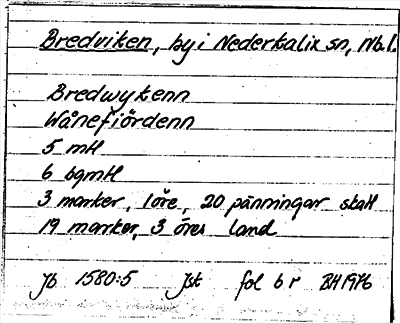 Bredviken, by i Nederkalix sn, Nb.l.
Bredwykenn
Wånefiördenn
5 mtl
6 bgmtl
3 marker, 1 öre, 20 pänningar skatt
19 marker, 3 öres land
Jb 1580:5 Jst fol 6 r BH 1976